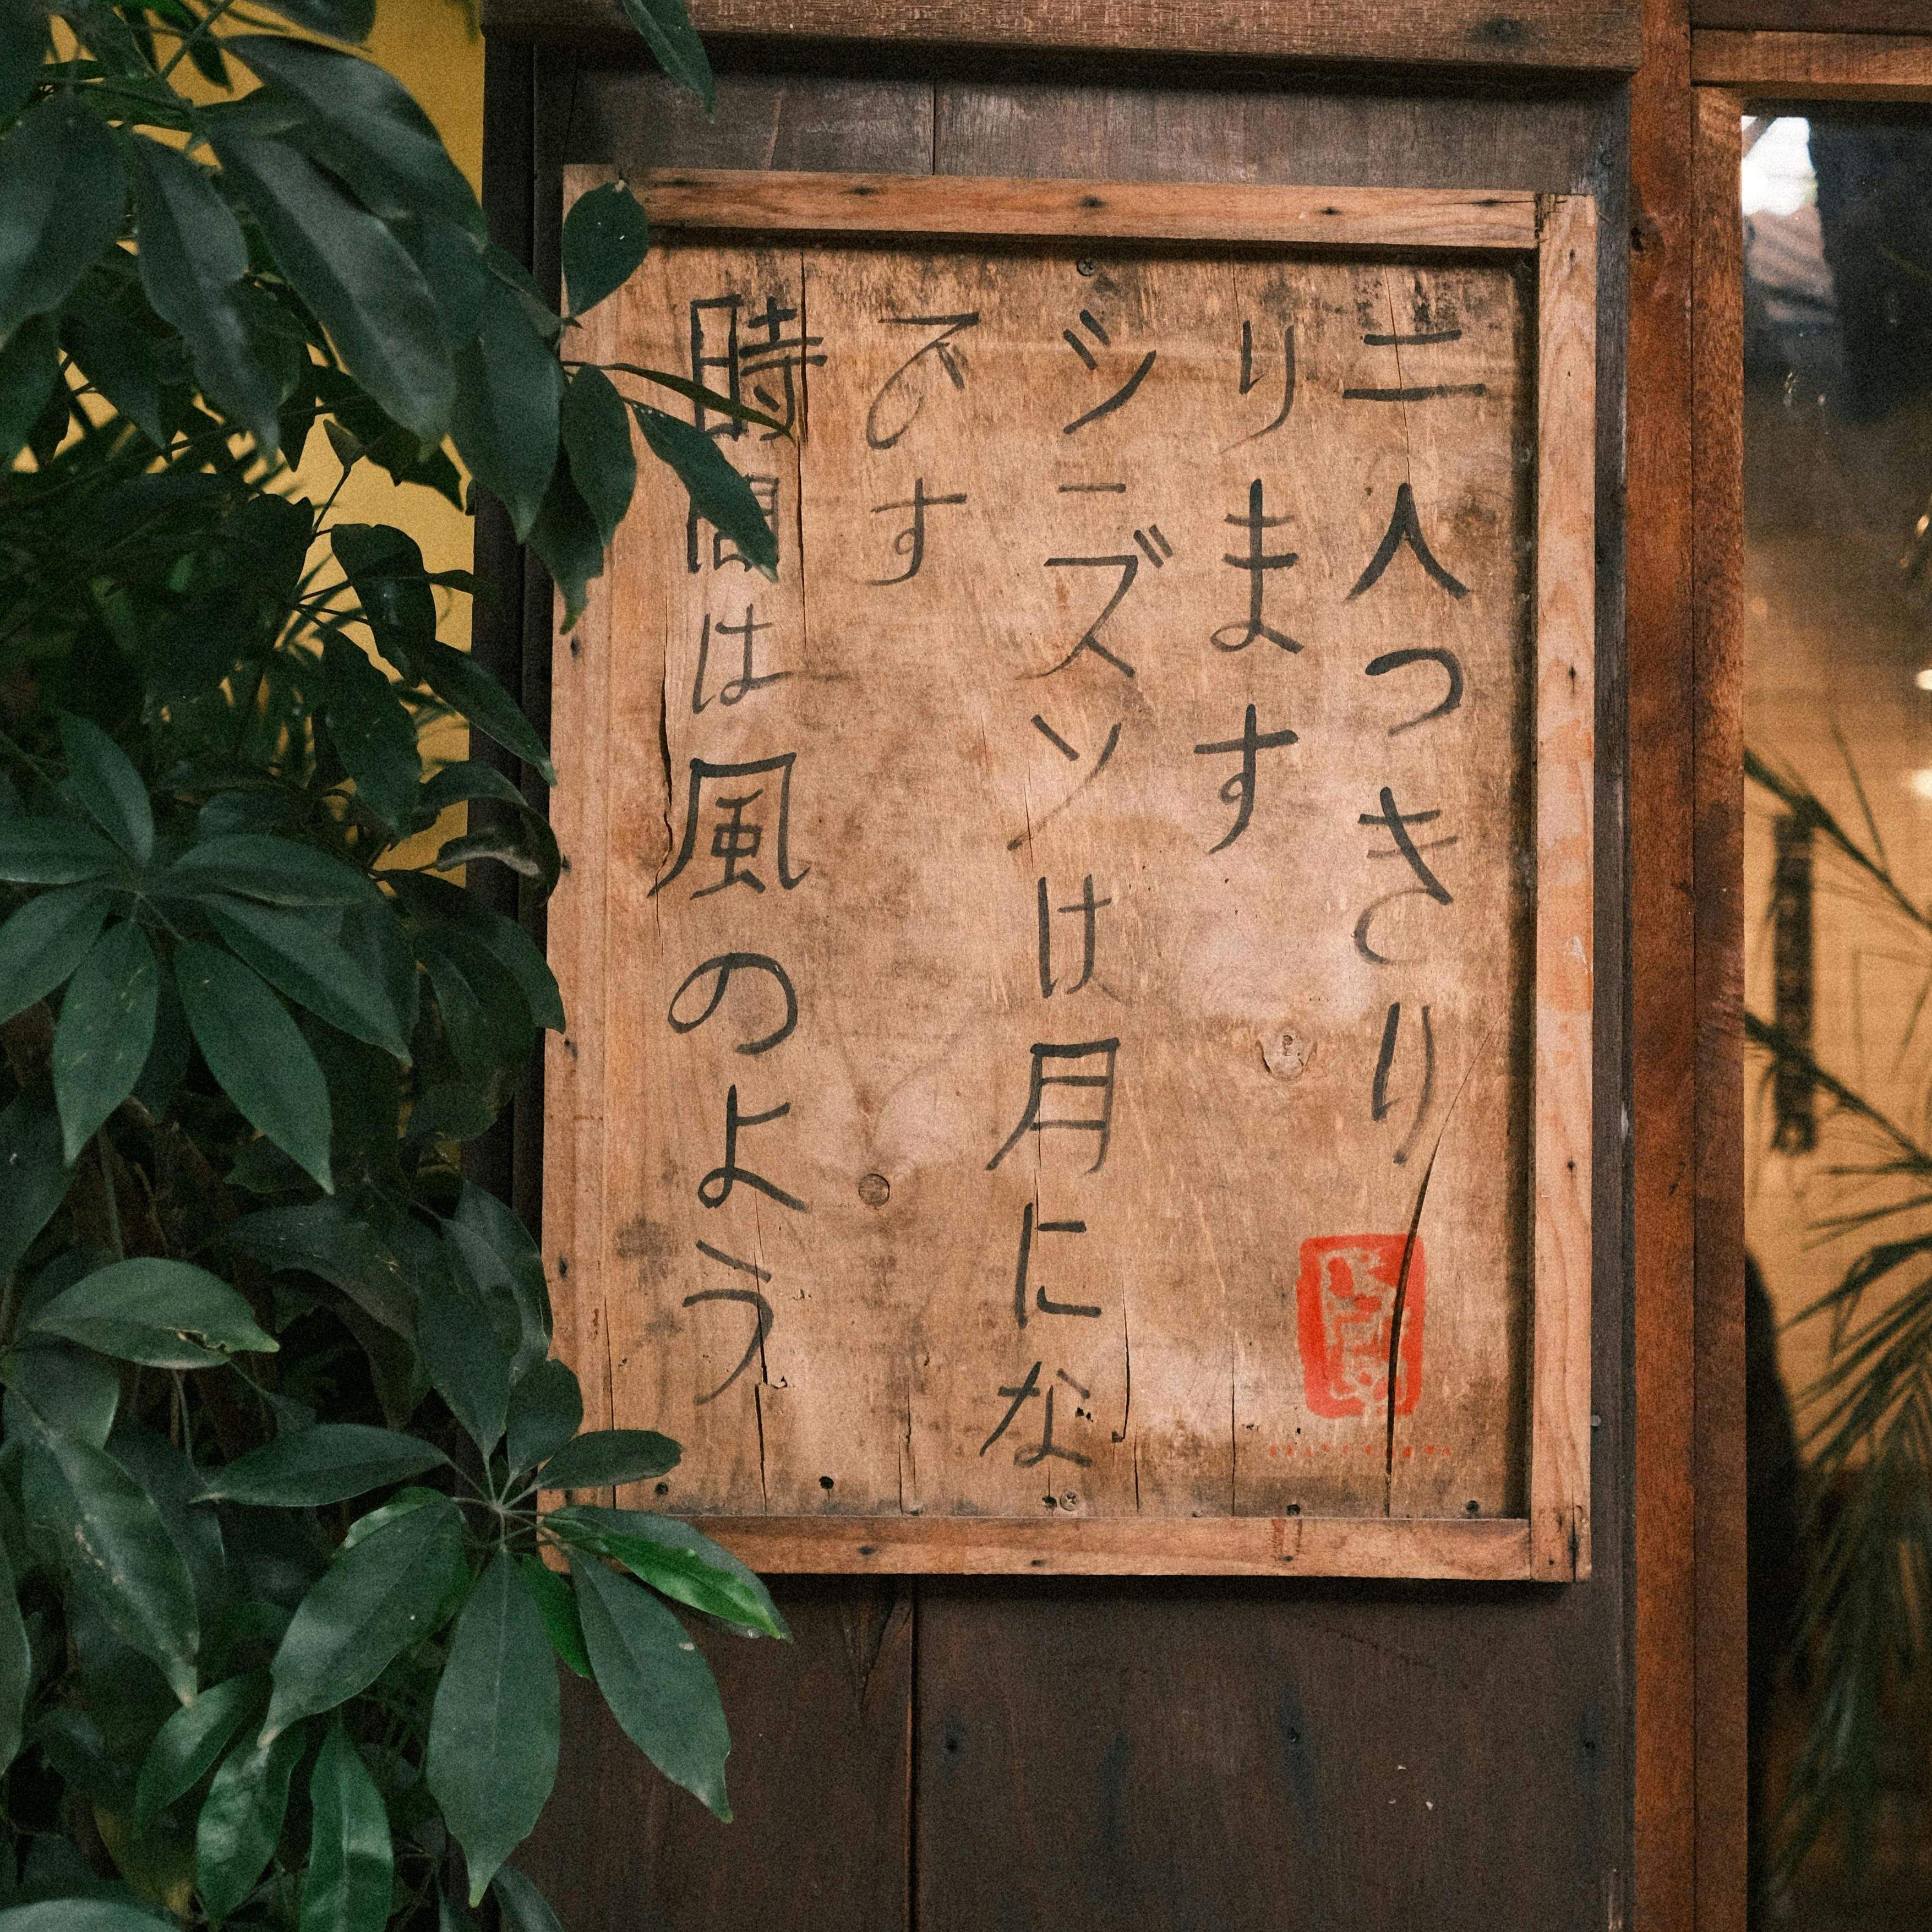 時間は風のよう
です
シーズンは月にな
ります
二人つきり